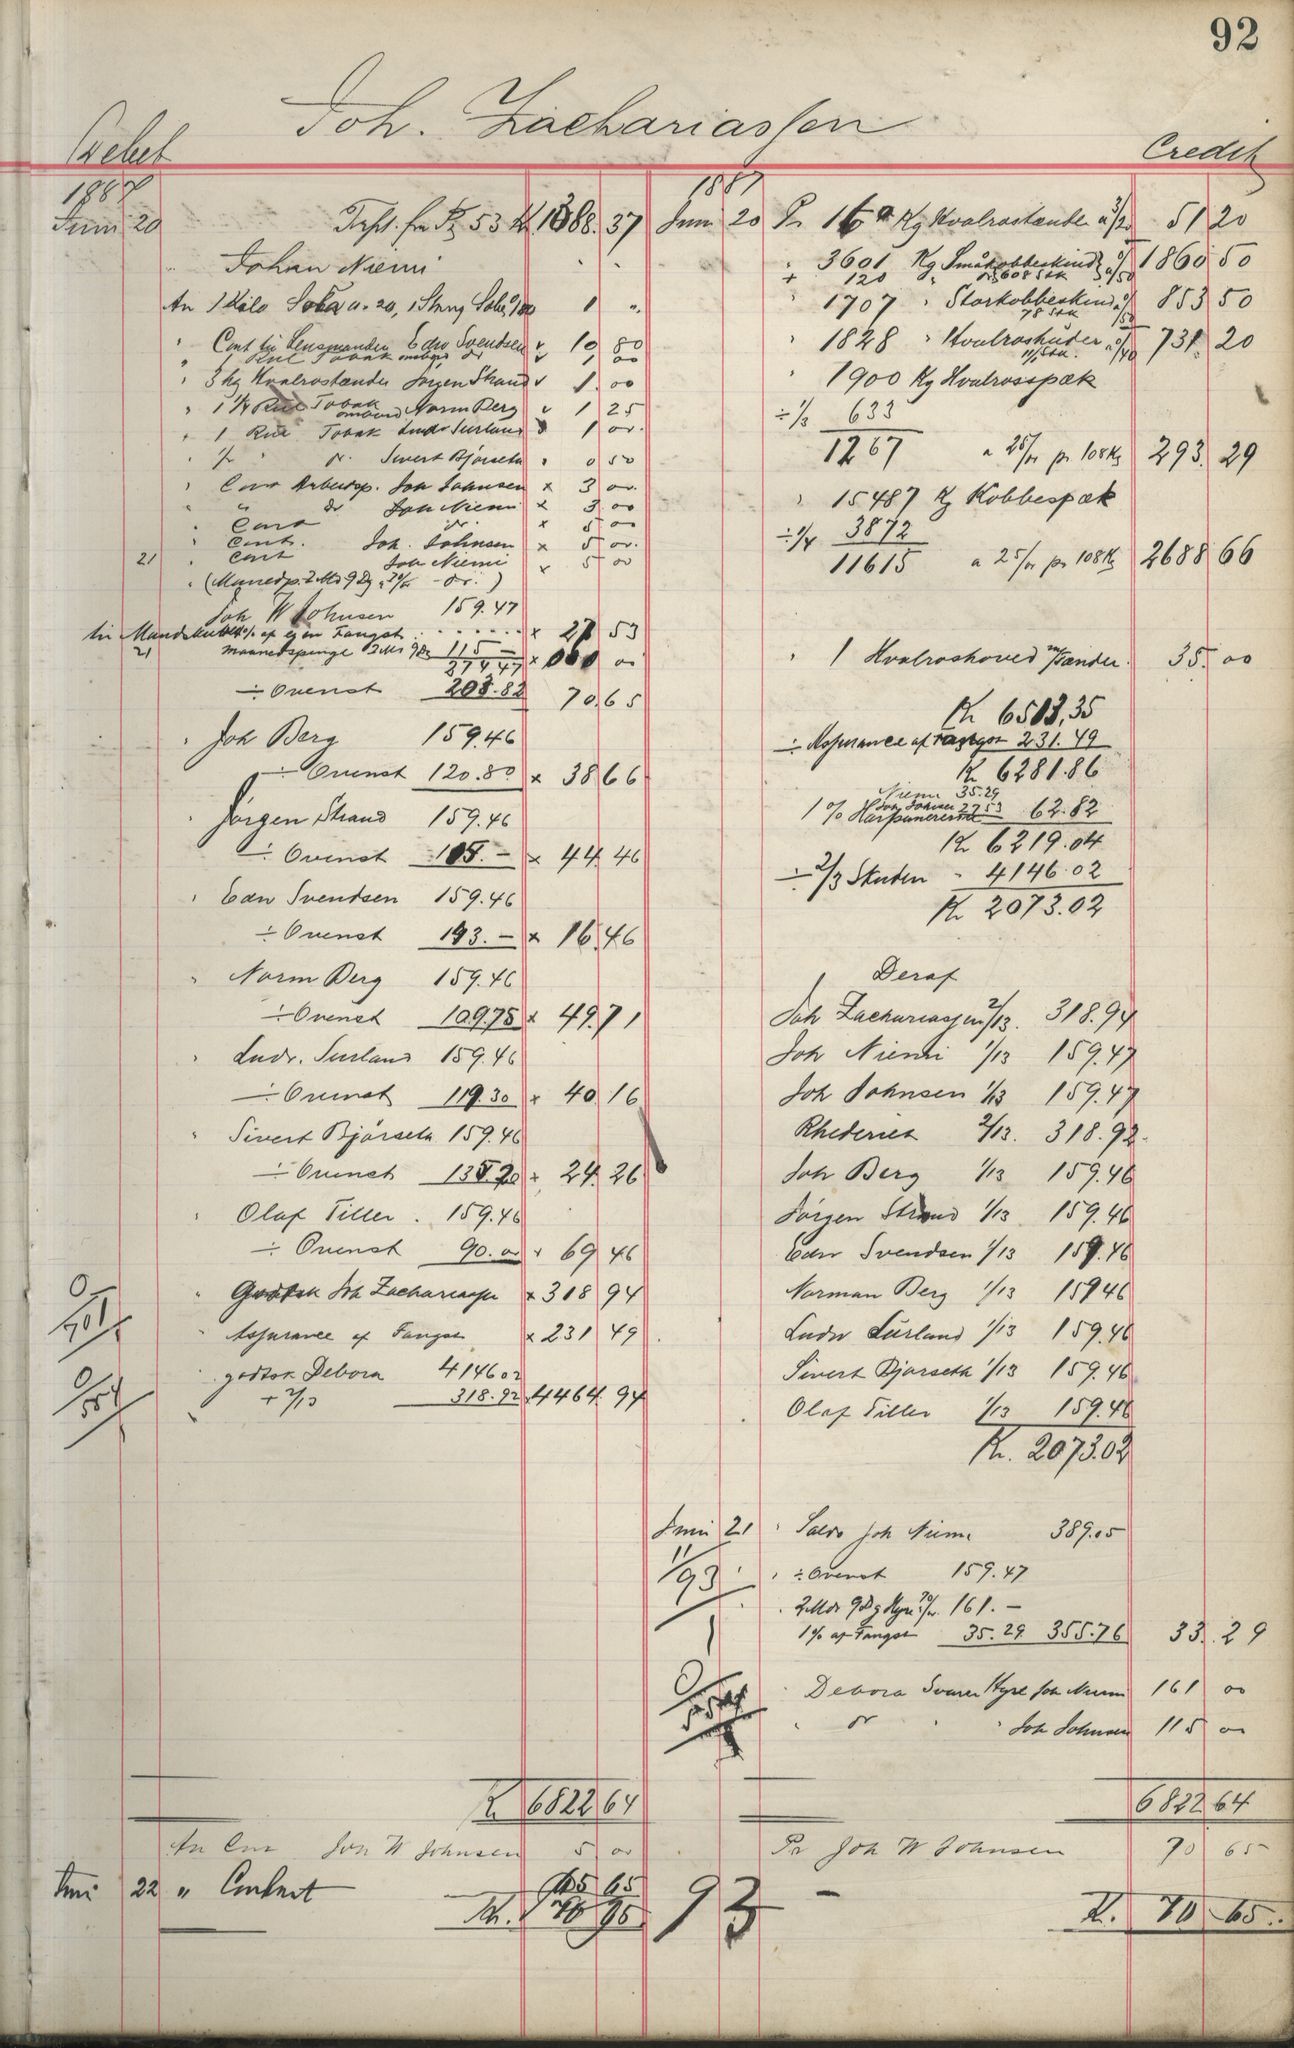 92
Joh. Zachariassen
Debet
Credit
1887
Juni 20 Trspt. fra Pg 53 Kr 1388.37
" Johan Niemi
An 1 Kilo Soda a. 20, 1 Stang Sæbe 1 "
" Cont til Lensmanden Edw Svendsen v 10 80
" 1 Rul Tobak ombord do v 1 00
" 3 kg Hvalrostænder Jörgen Strand v 1.00
" 1 1/4 Rul Tobak ombord Norm Berg v 1 25
" 1 Rul Tobak Ludv Surland 1 00
" 1/2 " do Sivert Bjørseth 0 50
" Cont Arbeidsp. Joh Johnsen x 3 00
" " do Joh Niemi x 3 00
" Cont do x 5 00
" Cont. Joh. Johnsen x 5 00
21 " Cont Joh Niemi x 5 00
" (Maanedsp. 2 Md 9 Dg 70/00 do.)
Joh W Johnsen 159.47
til Mandskabet % af egen Fangst x 27 53
21 Maanedspenge 2 Md 9 Dg 115 —
274 47 x 00
÷ Ovenst 203.82 70.65
" Joh Berg 159.46
÷ Ovenst 120.80 x 38 66
" Jörgen Strand 159.46
÷ Ovenst 115.— x 44.46
" Edw Svendsen 159.46
÷ Ovenst 143.— x 16.46
" Norm Berg 159.46
÷ Ovenst 109.75 x 49.71
" Ludv. Surland 159.46
÷ Ovenst 119.30 x 40 16
" Sivert Bjørseth 159.46
÷ Ovenst 135.20 x 24.26
" Olaf Tiller. 159.46
÷ Ovenst 90.00 x 69 46
" Godtsk Joh Zachariassen x 318 94
" Assurance af Fangst x 231 49
" godtsk Debora 4146 02
+ 2/13 318.92 x 4464.94
0/701
0/554
Kr 6822 64
An Con Joh W Johnsen 5 00
Juni 22 " Contant 65 65
Kr. 70 65
1887
Juni 20 Pr 160 Kg Hvalrostænder a 3/20 51 20
" 3601 Kg Småkobbeskind 608 Stk 1860 50
+ 120 " a/50
" 1707 " Storkobbeskind 78 Stk /50 853 50
" 1828 " Hvalroshuder Stk. 0/40 731. 20
" 1900 Kg Hvalrosspæk
÷ 1/3 633
1267 a 25/00 pr 108 Kg 293. 29
" 15487 Kg Kobbespæk
÷ 1/4 3872
11615 a 25/00 pr 108 Kg 2688 66
" 1 Hvalroshoved m/tænder. 35. 00
Kr 6513,35
÷ Assurance af Fangst 231.49
Kr 6281.86
Niemi 35.29
Joh Johnsen 27 53
1 % Harpunererne 62.82
Kr 6219.04
÷ 2/3 Skuden " 4146.02
Kr 2073.02
Deraf
Joh Zachariassen 2/13. 318.94
Joh Niemi 1/13 159.47
Joh Johnsen 1/13 159.47
Rhederiet 2/13. 318.92.
Joh Berg 1/13 159.46
Jörgen Strand 1/13 159.46
Edw Svendsen 1/13 159.46
Norman Berg 1/13 159 46
Ludv Surland 1/13 159.46
Sivert Bjørseth 1/13 159.46
Olaf Tiller 1/13 159.46
Kr. 2073.02
Juni 21 " Saldo Joh Niemi 389.05
11/93 " ÷ Ovenst 159.47
" 2 Mdr 9 Dg Hyre 70/00. 161.—
1% af Fangst 35.29 355.76 33. 29
0/554 " Debora Svarer Hyre Joh Niemi 161 00
" do " " Joh Johnsen 115 00
6822 64
Pr Joh W Johnsen 70 65
93
Kr. 70 65